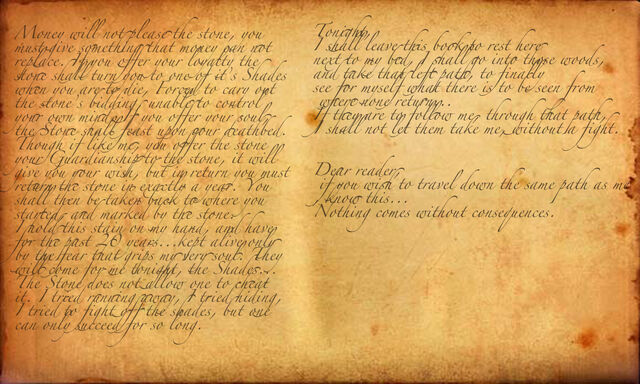 Money will not please the stone, you
must give something that money can not
replace. If you offer your loyalty the
stone shall turn you to one of it's Shades
when you are to die, Forced to cary out
the stone's bidding, unable to control
your own mind. If you offer your soul,
the Stone shall feast upon your deathbed.
Though if like me, you offer the stone
your Guardianship to the stone, it will
give you your wish, but in return you must
return the stone in exactly a year. You
shall then be taken back to where you
started, and marked by the stone.
I hold this stain on my hand, and have
for the past 20 years...kept alive only
by the fear that grips my very soul. They
will come for me tonight, the Shades...
The Stone does not allow one to cheat
it. I tried running away, I tried hiding,
I tried to fight off the shades, but one
can only succeed for so long.
Tonight,
I shall leave this book to rest here
next to my bed, I shall go into those woods,
and take that left path, to finally
see for myself what there is to be seen from
where none return..
If they are to follow me, through that path,
I shall not let them take me, without a fight.
Dear reader,
if you wish to travel down the same path as me
know this...
Nothing comes without consequences.